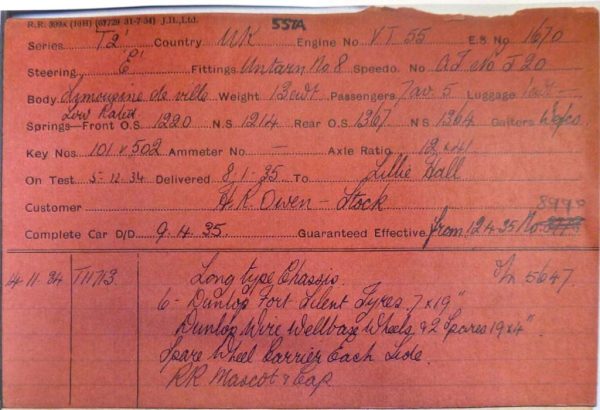 R.R. 399A (10H) (68729 31-7-34) J.H., Ltd. 55TA
Series T2' Country UK Engine No VT 55 E.S No 1670
Steering 'E' Fittings Untarn No 8 Speedo. No AT No J 20
Body Lymousine de ville Weight 13 cwt Passengers 7 av 5 Luggage 1cwt -
Low Rated
Springs—Front O.S 1220 N.S 1214 Rear O.S. 1367 N.S 1364 Gaiters Wefco
Key Nos 101 & 502 Ammeter No - Axle Ratio 12 x 41
On Test 5-12.34 Delivered 8-1-35 To Lillie Hall
Customer H.R. Owen - Stock 8990
Complete Car D/D 9.4.35. Guaranteed Effective from 12.4.35 No
14.11.34 T1173. Long type Chassis. 5647
6 - Dunlop Fort Silent Tyres. 7 x 19"
Dunlop Wire Wellbase Wheels & 2 Spares 19 x 4"
Spare Wheel Carrier Each Side.
RR Mascot & Cap.